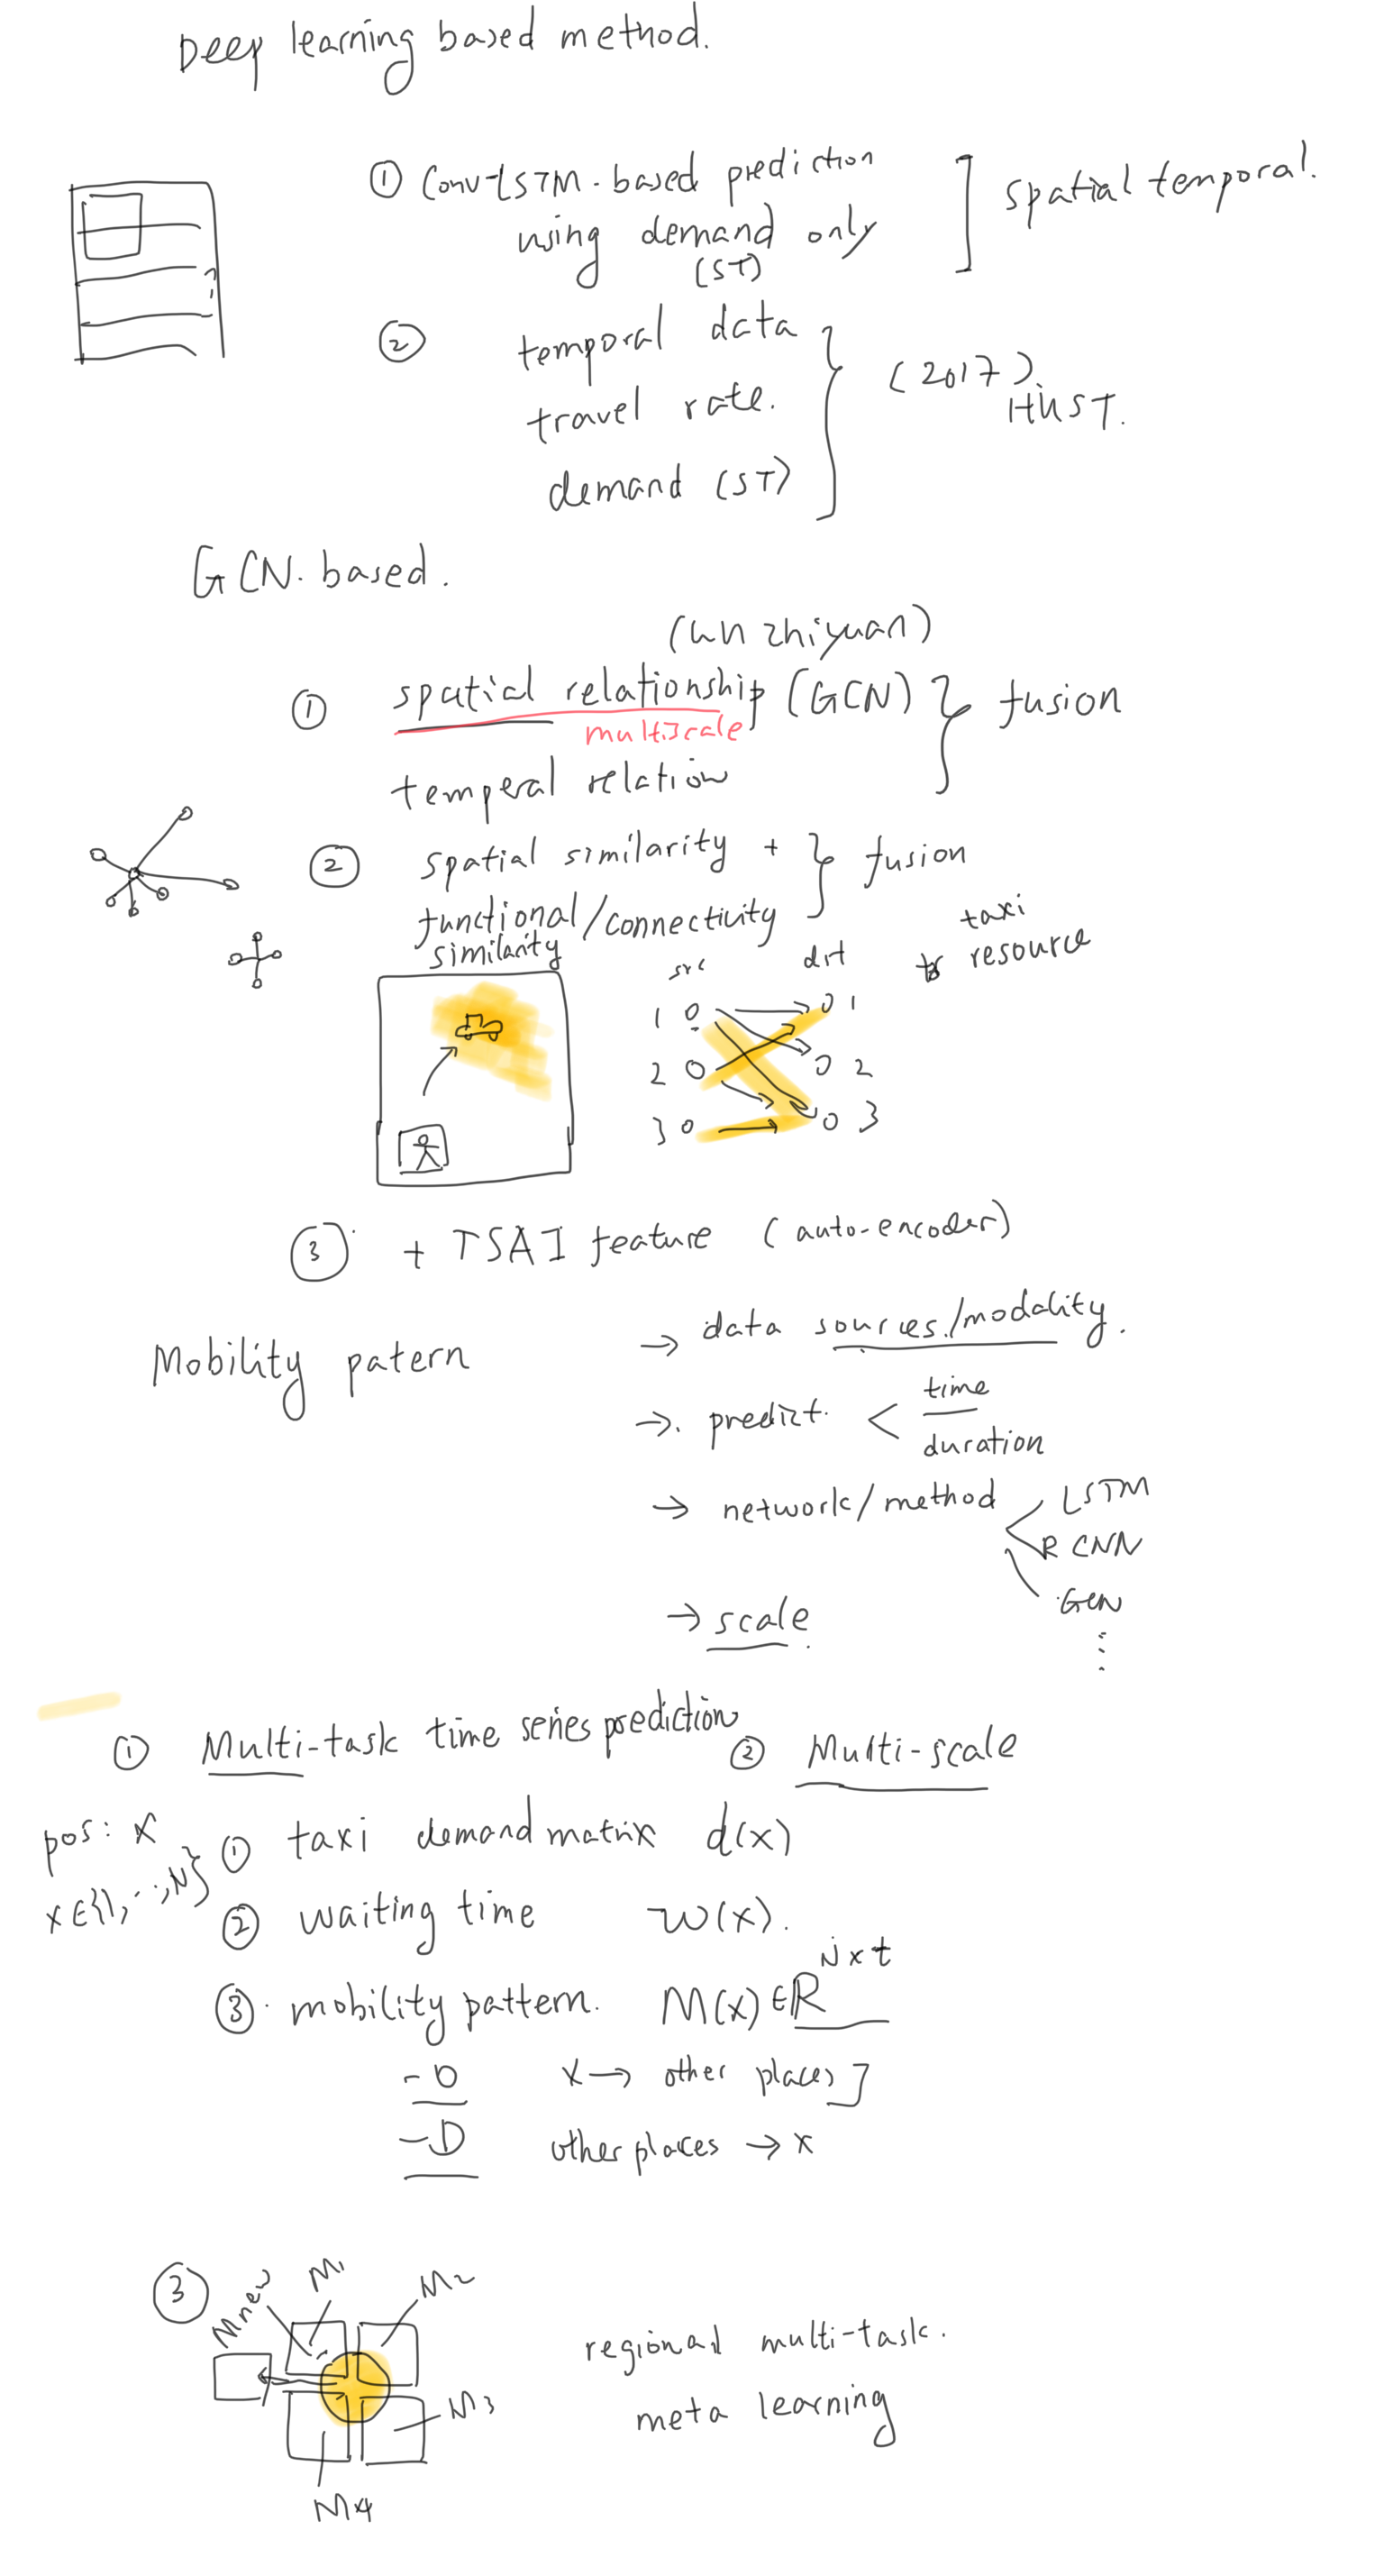 Deep learning based method.
① Conv-LSTM-based prediction
using demand only
(ST)
] spatial temporal.
② temporal data
travel rate.
demand (ST)
(2017)
HKUST.
GCN. based.
zhiyuan)
① spatial relationship (GCN) } fusion
multiscale
temperal relation
② spatial similarity + } fusion
functional/connectivity
similarity
src
dst
taxi
resource
1 0 0 1
2 0 0 2
3 0 0 3
③ + TSAI feature (auto-encoder)
Mobility patern
→ data sources/modality.
→ predict. < time
duration
→ network/method
LSTM
RCNN
GCN
⋮
→ scale
① Multi-task time series prediction
② Multi-scale
pos: x
x∈{1, ..., N}
① taxi demand matrix d(x)
② waiting time w(x).
③ mobility pattern. M(x) ∈ R^N×t
- O x → other places]
- D other places → x
③
Mnew
M1
M2
M3
M4
regional multi-task.
meta learning